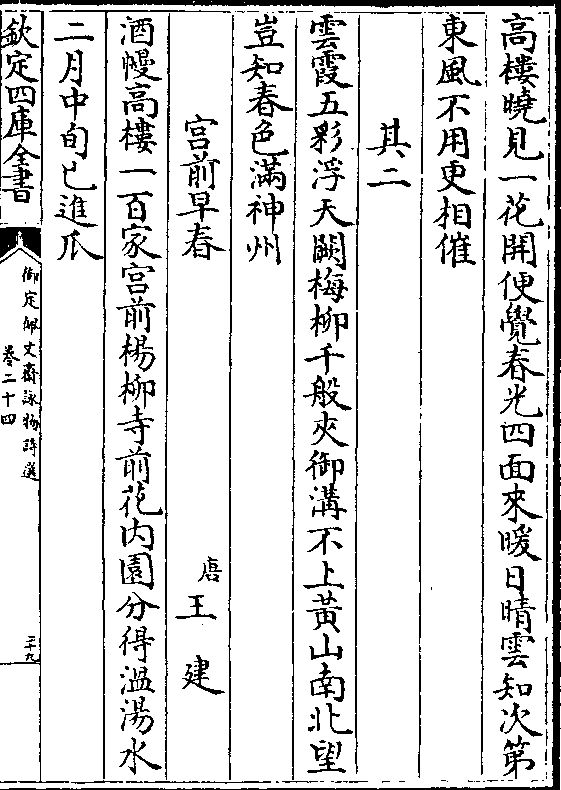 高樓曉見一花開便覺春光四面來暖日晴雲知次第
東風不用更相催
其二
雲霞五彩浮天闕梅柳千般夾御溝不上黃山南北望
豈知春色滿神州
宮前早春
唐王建
酒幔高樓一百家宮前楊柳寺前花内園分得溫湯水
二月中旬已進瓜
欽定四庫全書
御定佩文齋詠物詩選
卷二十四
三十九